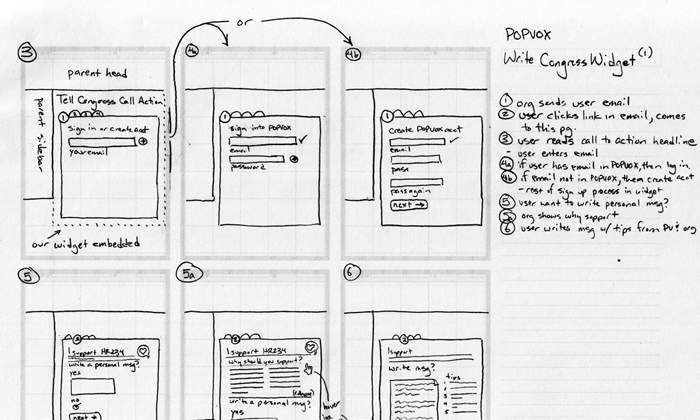 or
3
parent head
parent sidebar
Tell Congress Call Action
1
sign in or create acct
your email
our widget embedded
4a
1
sign into POPVOX
email
password
4b
1
Create POPVOX acct
email
pass
pass again
next →
POPVOX
Write Congress Widget (1)
1 org sends user email
2 user clicks link in email, comes
to this pg.
3 user reads call to action headline
- user enters email
4a if user has email in POPVOX, then log in
4b if email not in POPVOX, them create acct
- rest of sign up process in widget
5 user want to write personal msg?
5a org shows why support
6 user writes msg w/ tips from PV & org
5
2
I support HR234
write a personal msg?
yes
no
next →
5a
2
I support HR234
why should you support?
write a personal msg?
yes
hover
6
2
I support
write msg?
tips